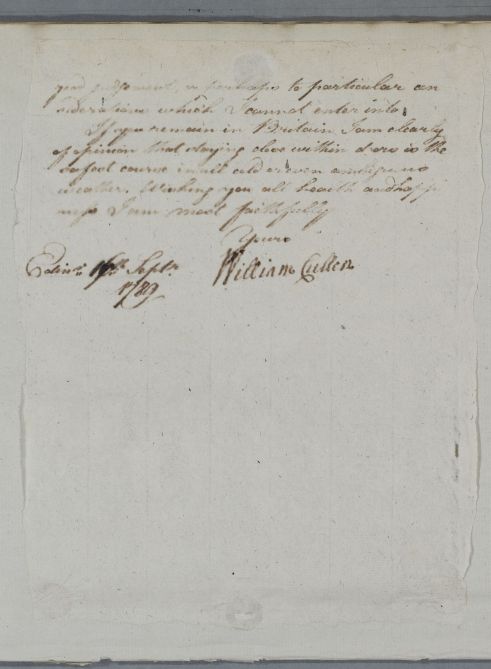 good judgement, or perhaps to particular con
siderations which I cannot enter into.
If you remain in Britain I am clearly
of opinion that staying close within doors is the
safest course in all cold or even ambiguous
weather. Wishing you all health and happi
ness I am most faithfully
Yours
William Cullen
Edinr. 16th Septr.
1789